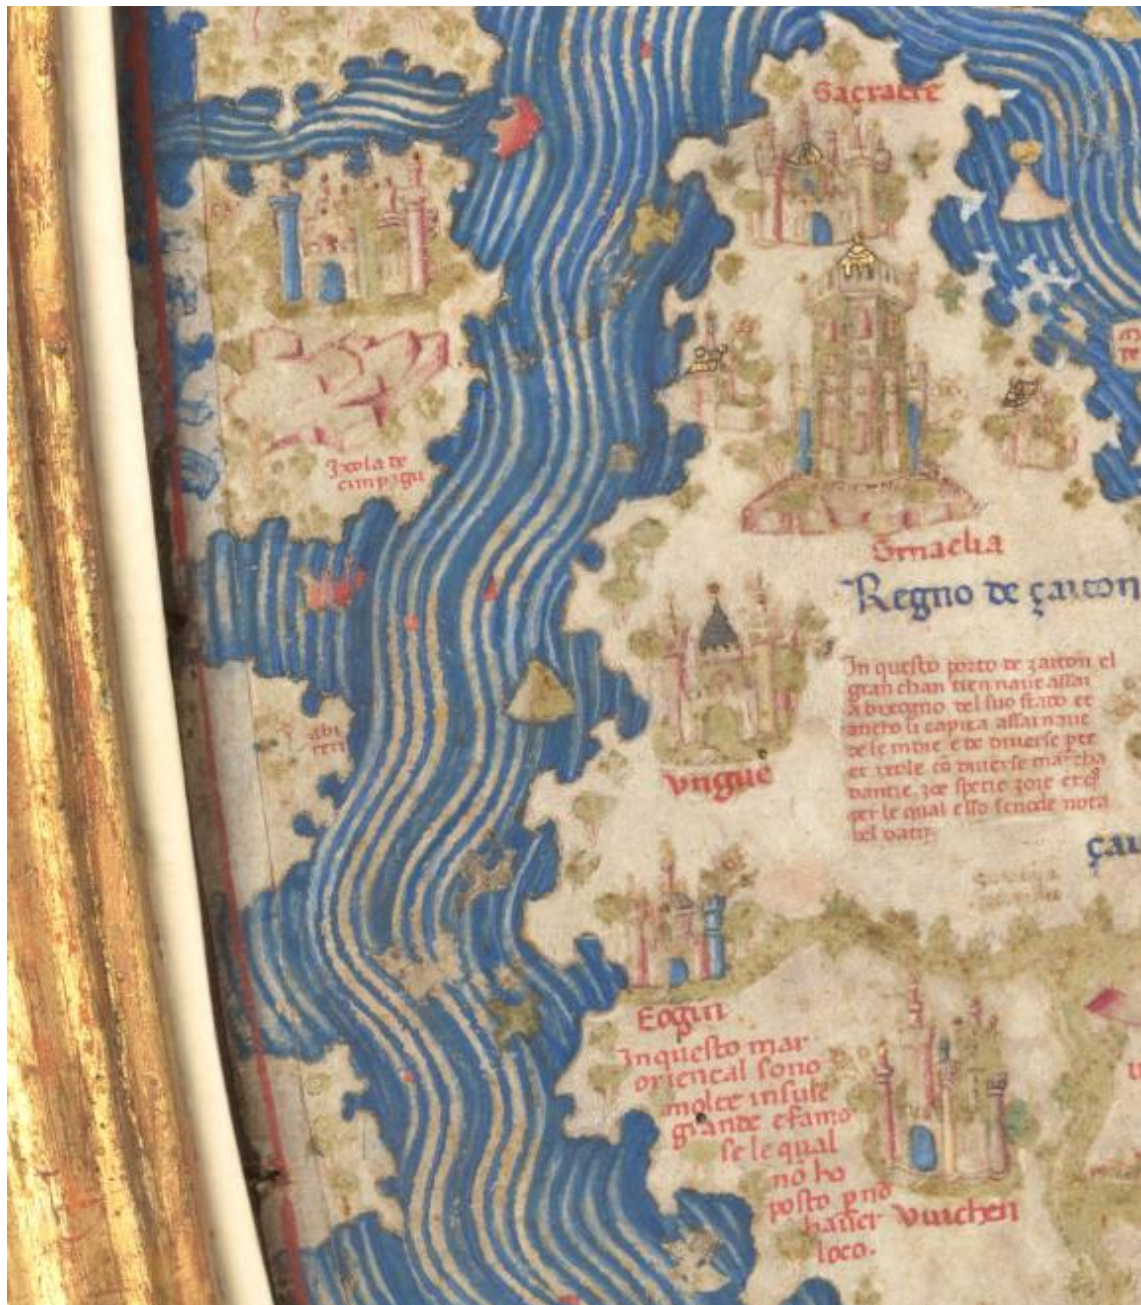 Sacracre
Ixola de
cimpagu
Smaelia
Regno de çaiton
In questo porto de zaiton el
gran chan tien nave assai
a bixogno del suo stado et
ancho li capita assai nave
de le indie e de diverse pte
et ixole cõ diverse marcha
dantie, zoe specie zoie et
per le qual esso scuode nota
bel datii.
abi
Ungue
çai
Eogin
In questo mar
oriental sono
molte insule
grande e famo
se le qual
nõ ho
posto p nõ
haver
loco.
Vuichen